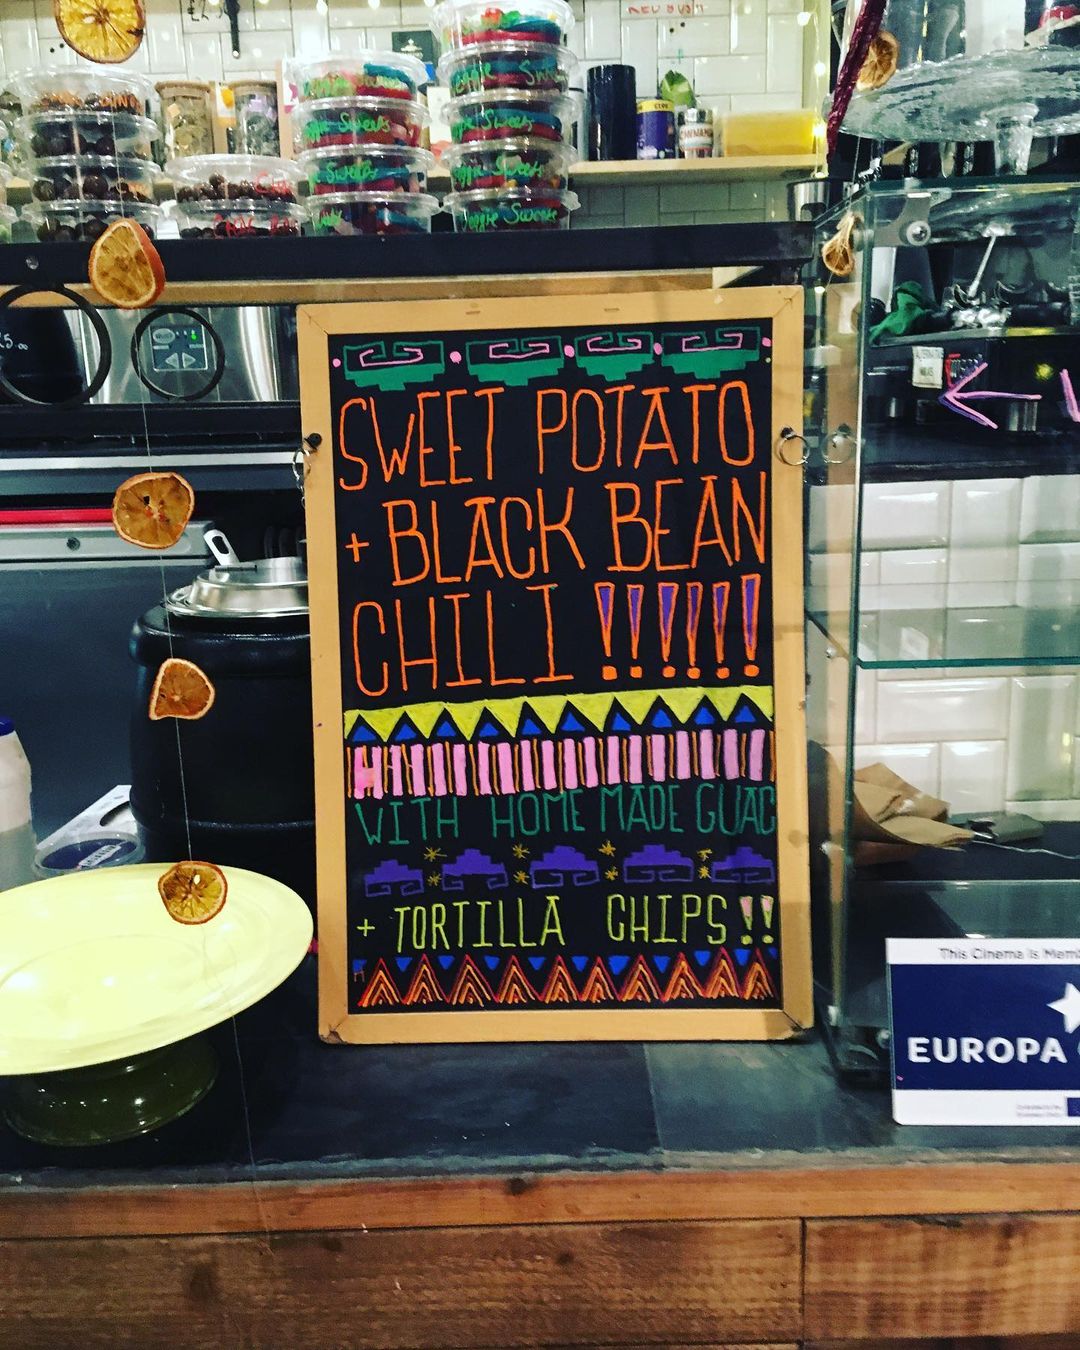 Veggie Sweets
Veggie Sweets
Veggie Sweets
SWEET POTATO
+ BLACK BEAN
CHILI !!!!!!
WITH HOME MADE GUAC
+ TORTILLA CHIPS!!
This Cinema is
EUROPA